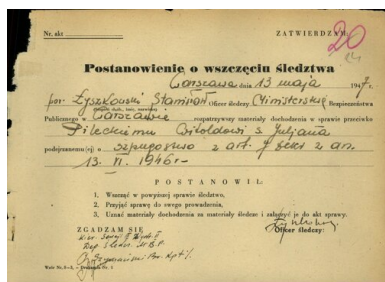 Nr. akt
ZATWIERDZAM
20
Postanowienie o wszczęciu śledztwa
Warszawa dnia 13 maja 1947 r.
por. Łyszkowski Stanisław Oficer śledczy Ministerstwa Bezpieczeństwa
Publicznego w Warszawie rozpatrzywszy materiały dochodzenia w sprawie przeciwko
Pileckiemu Witoldowi s. Juljana
podejrzanemu(ej) o szpiegostwo z art. 7 dekr. z dn.
13. VI. 1946 r.
POSTANOWIŁ:
1. Wszcząć w powyższej sprawie śledztwo,
2. Przyjąć sprawę do swego prowadzenia,
3. Uznać materiały dochodzenia za materiały śledcze i załączyć je do akt sprawy.
ZGADZAM SIĘ
Oficer śledczy: